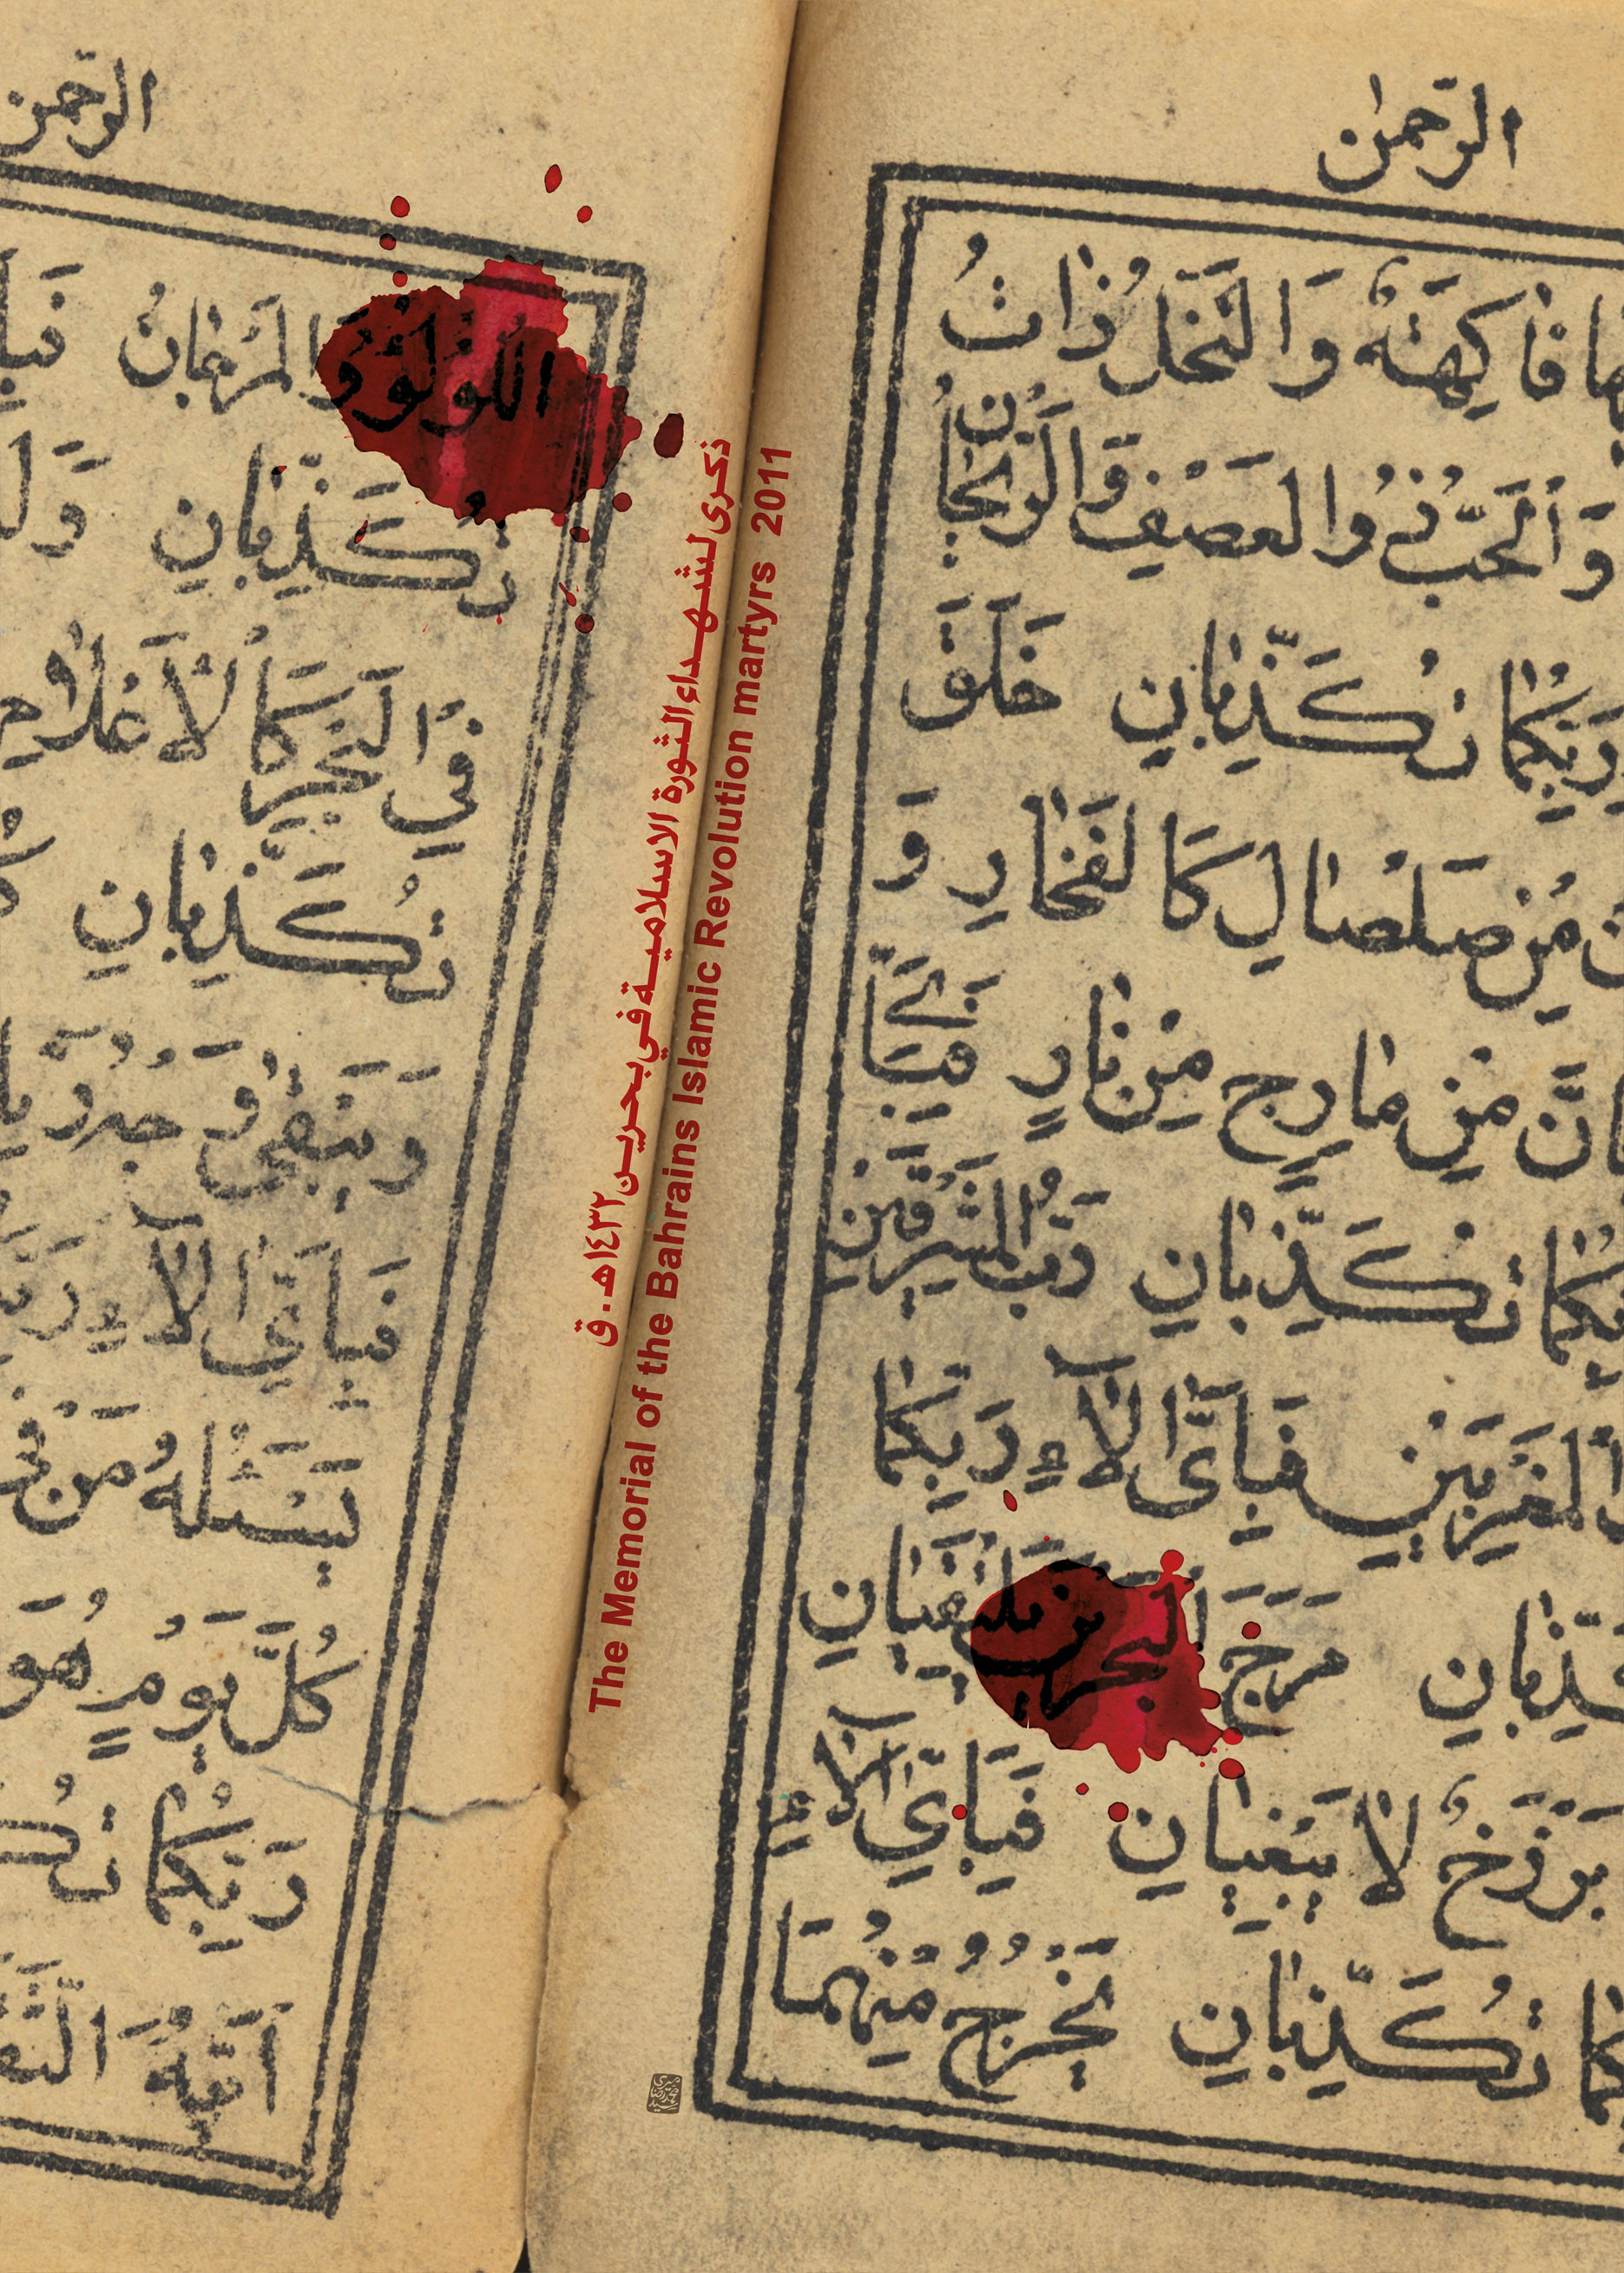 الرّحمٰن
ها فاكِهَةٌ وَالنَّخلُ ذاتُ
وَالحَبُّ ذُو العَصفِ وَالرَّيحا
نُ
رَبِّكُما تُكَذِّبانِ خَلَقَ
مِن صَلصالٍ كَالفَخّارِ وَ
انَّ مِن مارِجٍ مِن نارٍ فَبِاَىِّ
كُما تُكَذِّبانِ رَبُّ المَشرِقَينِ
المَغرِبَينِ فَبِاَىِّ الآءِ رَبِّكُما
ذِّبانِ مَرَجَ البَحرَينِ يَلتَقِيانِ
بَرزَخٌ لا يَبغِيانِ فَبِاَىِّ الآءِ
كُما تُكَذِّبانِ يَخرُجُ مِنهُمَا
الرّحمن
اللُّؤلُؤُ وَالمَرجانُ فَبِاَ
تُكَذِّبانِ وَلَ
فِي البَحرِ كَالاَعلامِ
تُكَذِّبانِ
وَيَبقى وَجهُ رَبِّ
فَبِاَىِّ الآءِ رَبِّ
يَسئَلُهُ مَن فِى
كُلَّ يَومٍ هُوَ
رَبِّكُما تُكَ
اَيُّهَ الثَّقَ
ذكرى لشهداء الثورة الاسلامية في بحرين ١٤٣٢هـ.ق
The Memorial of the Bahrains Islamic Revolution martyrs 2011